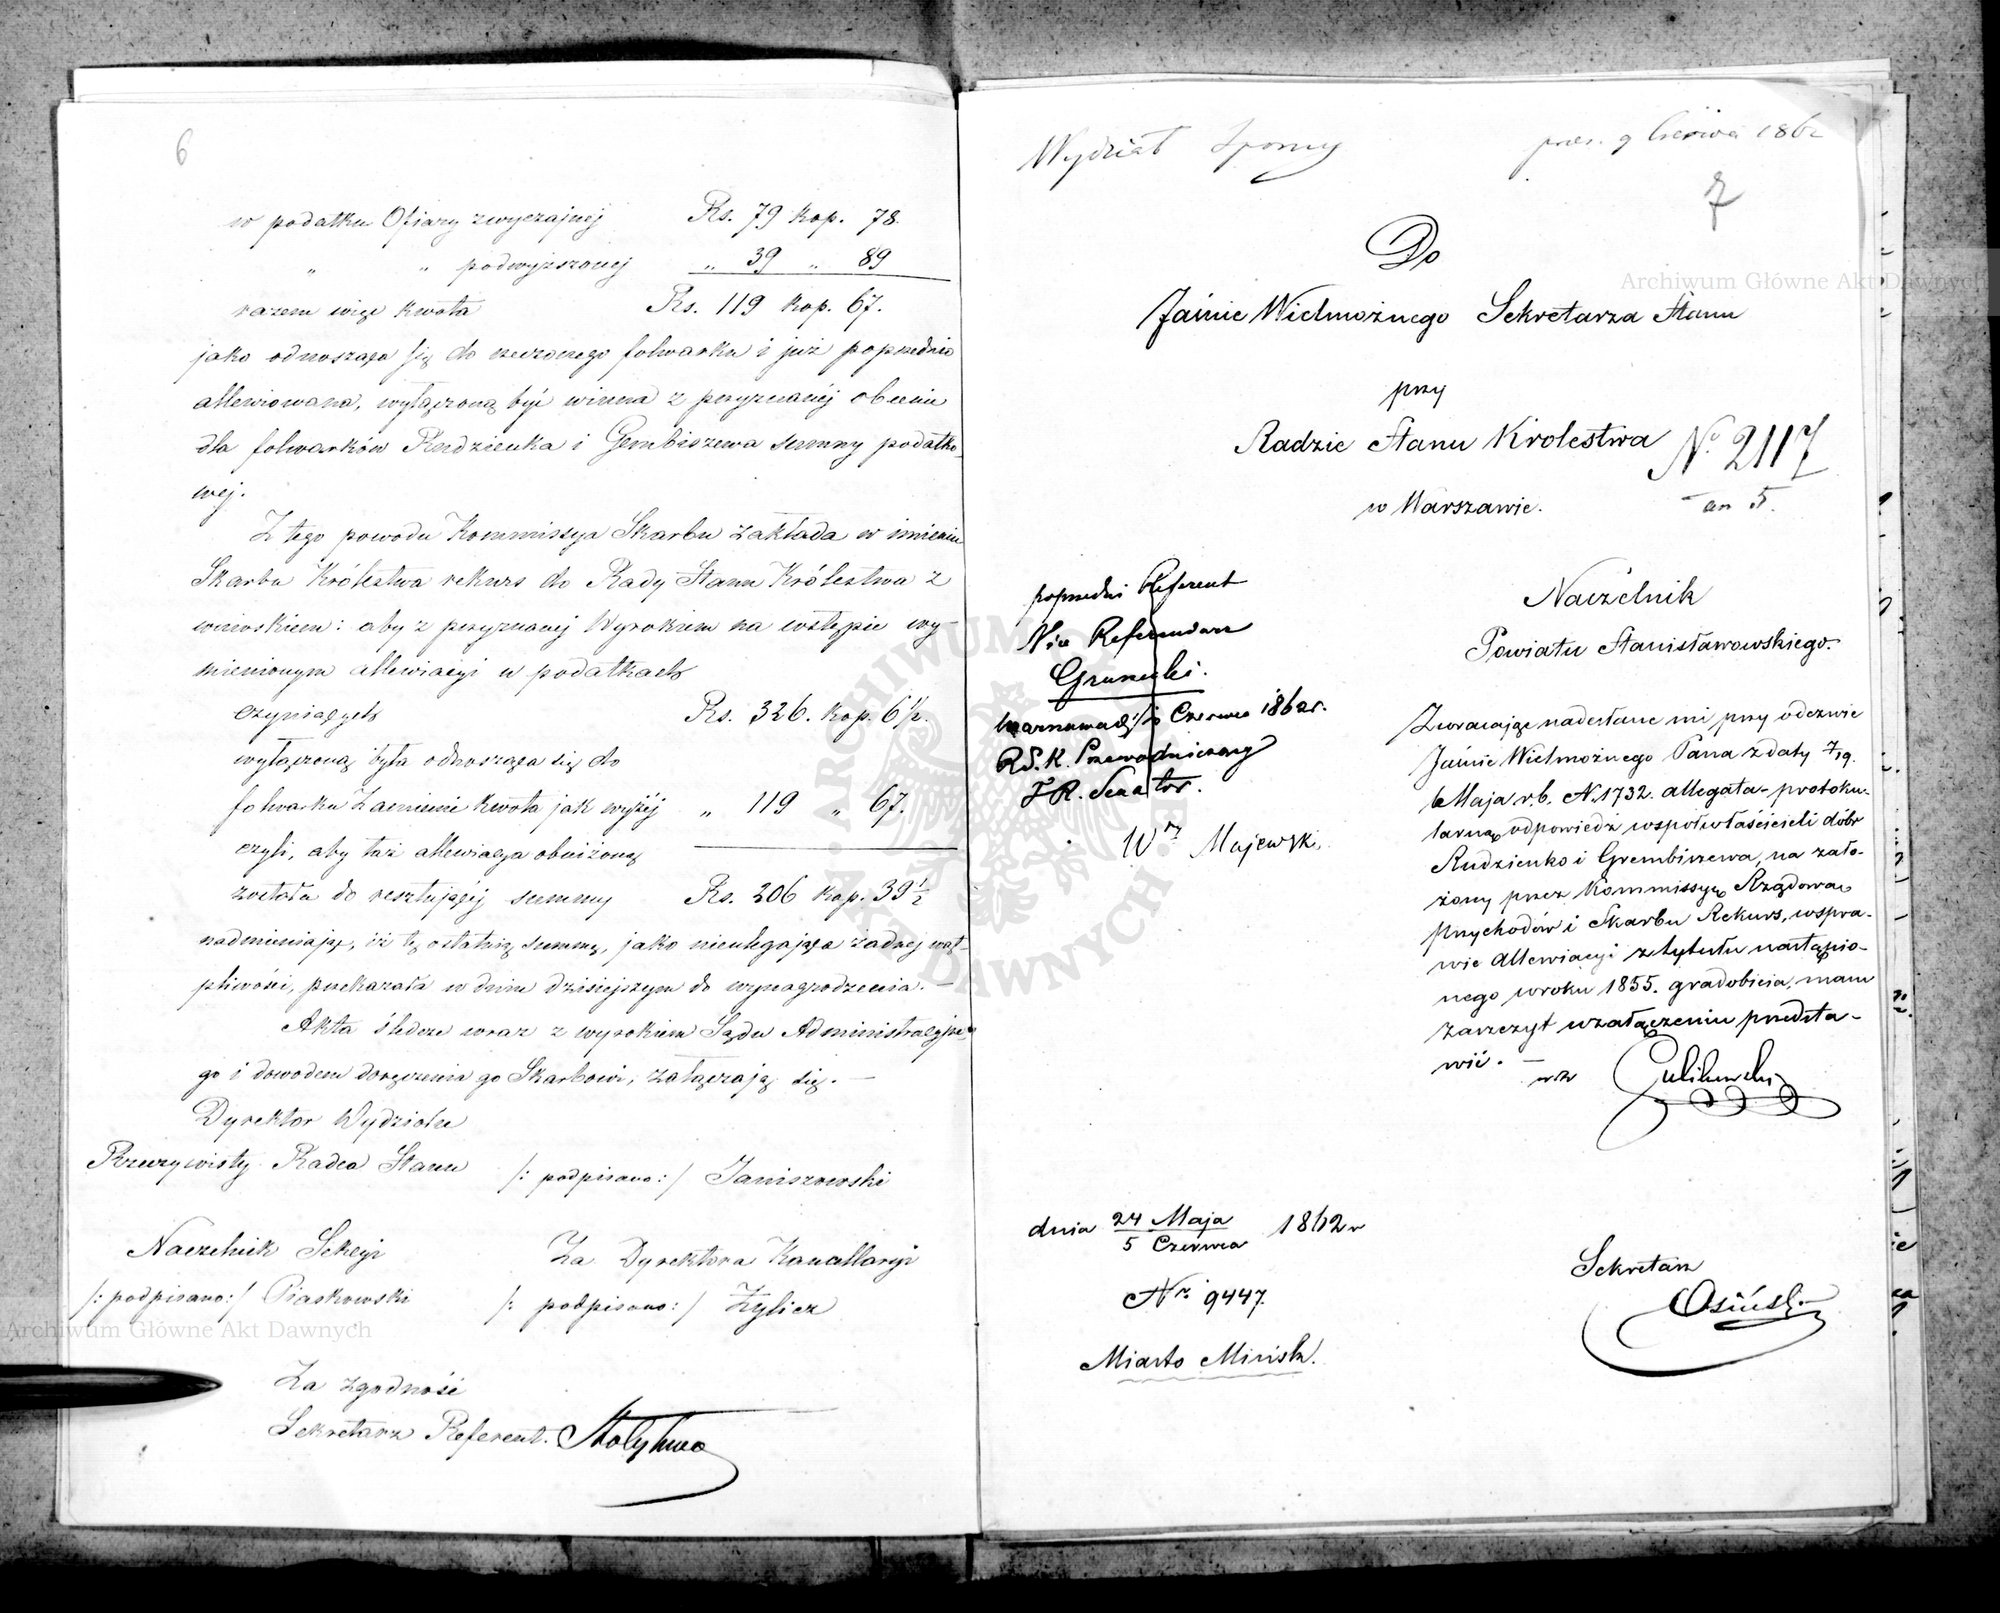 6
w podatku Ofiary zwyczajnej Rs. 79 kop. 78.
" " podwyższonej " 39 " 89
razem więc kwota Rs. 119 kop. 67.
jako odnosząca się do rzeczonego folwarku i już poprzednio
allewiowana, wyłączoną być winna z przyznanéj obecnie
dla folwarków Rudzienka i Gembiszewa summy podatko-
wej.
Z tego powodu Kommissya Skarbu zakłada w imieniu
Skarbu Królestwa rekurs do Rady Stanu Królestwa z
wnioskiem: aby z przyznanej Wyrokiem na wstępie wy-
mienionym allewiacyi w podatkach
czyniących Rs. 326. kop. 6½.
wyłączoną była odnosząca się do
folwarku Zamienie kwota jak wyżéj " 119 " 67.
czyli, aby taż allewiacya obniżoną
została do resztującéj summy Rs. 206 kop. 39½
nadmieniając, iż tę ostatnią summę, jako nieulegającą żadnej wąt-
pliwości, przekazała w dniu dzisiejszym do wynagrodzenia. —
Akta śledcze wraz z wyrokiem Sądu Administracyjne-
go i dowodem doręczenia go Skarbowi, załączają się. —
Dyrektor Wydziału
Rzeczywisty Radca Stanu /: podpisano :/ Janiszowski
Naczelnik Sekcyi Za Dyrektora Kancellaryi
/: podpisano :/ Piaskowski /: podpisano :/ Żylicz
Za zgodność
Sekretarz Referent.
Wydział Sporny prez. 9 Czerwca 1862
7
Do
Jaśnie Wielmożnego Sekretarza Stanu
przy
Radzie Stanu Krolestwa No 2117
w Warszawie. an 5.
poprzedni Referent
Referendarz
Czerwca 1862 r.
R.S.K. Przewodniczący
T.R. Senator.
Majewski
Naczelnik
Powiatu Stanisławowskiego.
Zwracając nadesłane mi przy odezwie
Jaśnie Wielmożnego Pana z daty 7/19.
Maja r.b. N. 1732. allegata — protoku-
larną odpowiedź wspołwłaścicieli dóbr
Rudzienko i Grembiszewa, na zało-
żony przez Kommissyą Rządową
Przychodów i Skarbu Rekurs, wspra-
wie allewiacyi z tytułu nastąpio-
nego w roku 1855. gradobicia, mam
zaszczyt w załączeniu przedsta-
wić. —
dnia 24 Maja / 5 Czerwca 1862 r
Nr 9447.
Miasto Mińsk.
Sekretarz
Osiński
Archiwum Główne Akt Dawnych
Archiwum Główne Akt Dawnych
ARCHIWUM GŁÓWNE AKT DAWNYCH